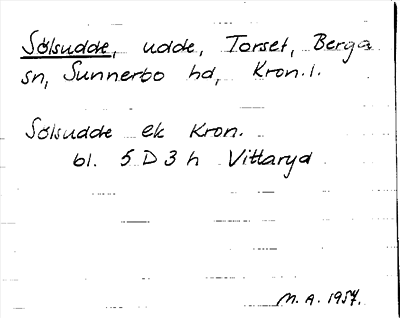 Sölsudde, udde, Torset, Berga
sn, Sunnerbo hd, Kron. l.
Sölsudde ek Kron.
bl. 5 D 3 h Vittaryd
M. A. 1957.